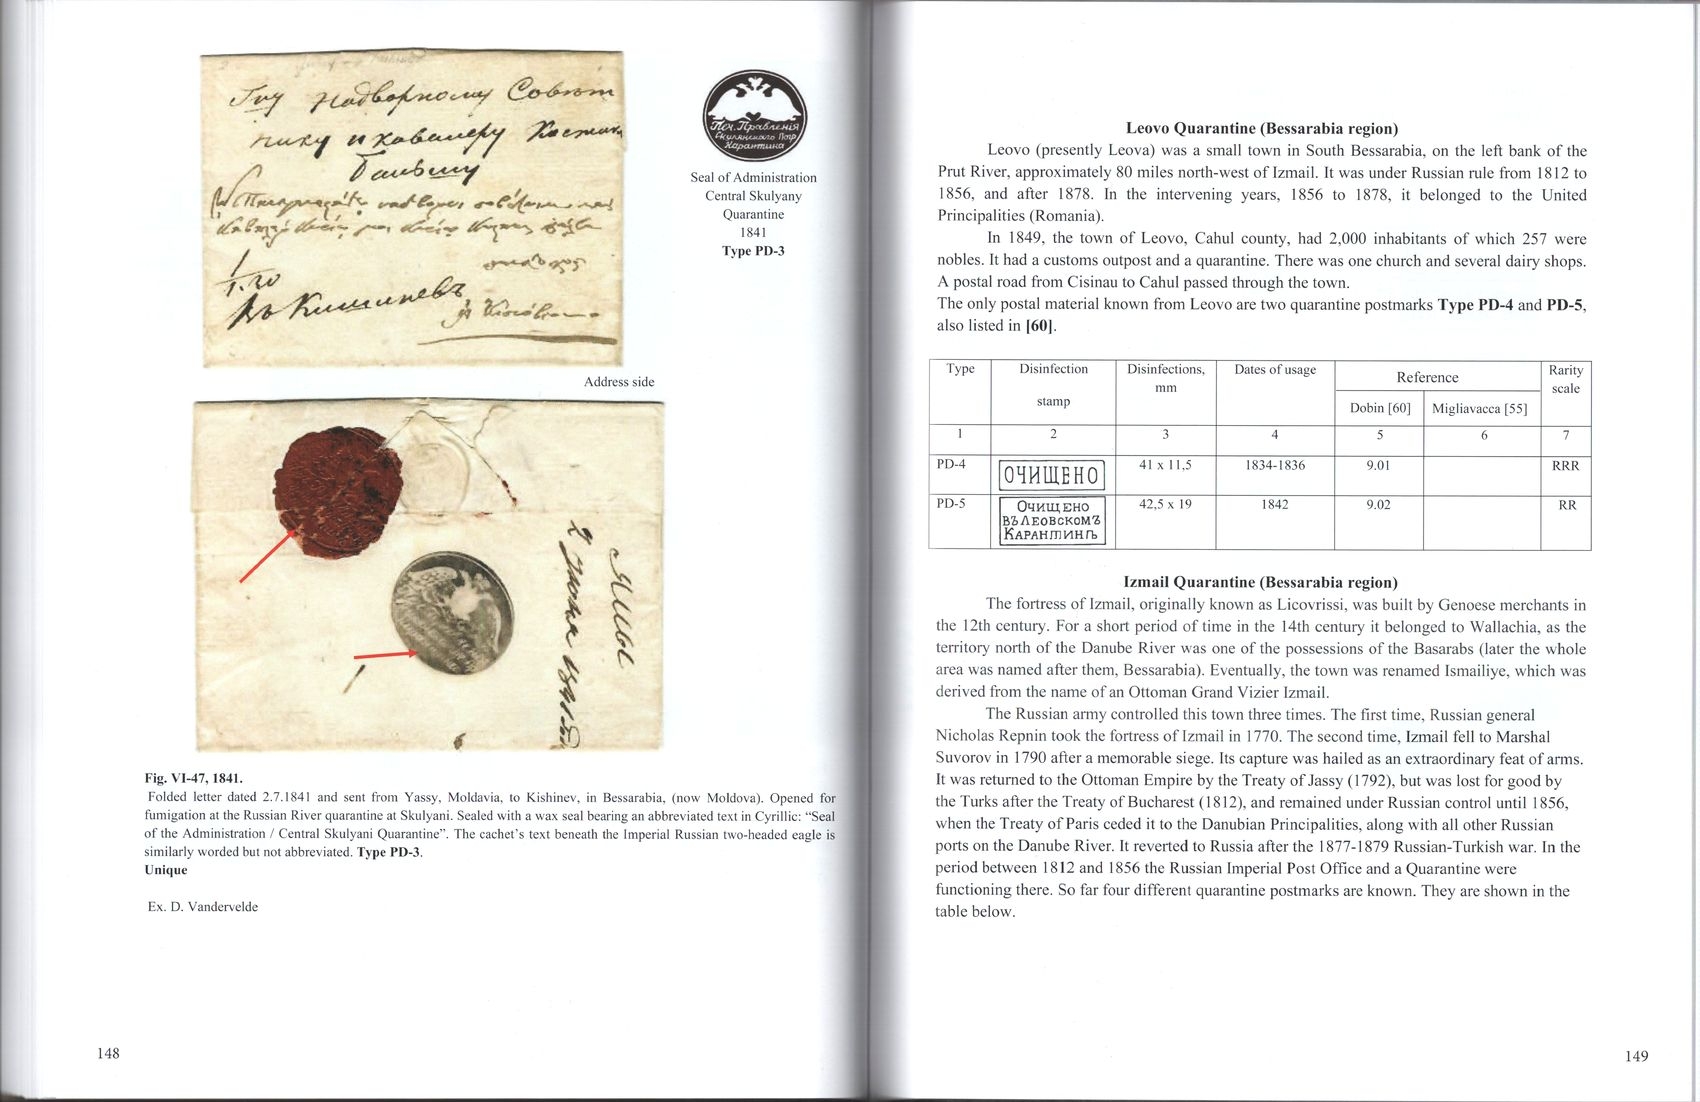 Гну Надворному Совѣт
нику и кавалеру Костаки
Башу
1/1.20
Въ Кишиневъ
Печ. Правленія
Скулянскаго Цтр.
Карантина
Seal of Administration
Central Skulyany
Quarantine
1841
Type PD-3
Address side
Яссы
2 Июля 1841
Fig. VI-47, 1841.
Folded letter dated 2.7.1841 and sent from Yassy, Moldavia, to Kishinev, in Bessarabia, (now Moldova). Opened for
fumigation at the Russian River quarantine at Skulyani. Sealed with a wax seal bearing an abbreviated text in Cyrillic: “Seal
of the Administration / Central Skulyani Quarantine”. The cachet’s text beneath the Imperial Russian two-headed eagle is
similarly worded but not abbreviated. Type PD-3.
Unique
Ex. D. Vandervelde
148
Leovo Quarantine (Bessarabia region)
Leovo (presently Leova) was a small town in South Bessarabia, on the left bank of the
Prut River, approximately 80 miles north-west of Izmail. It was under Russian rule from 1812 to
1856, and after 1878. In the intervening years, 1856 to 1878, it belonged to the United
Principalities (Romania).
In 1849, the town of Leovo, Cahul county, had 2,000 inhabitants of which 257 were
nobles. It had a customs outpost and a quarantine. There was one church and several dairy shops.
A postal road from Cisinau to Cahul passed through the town.
The only postal material known from Leovo are two quarantine postmarks Type PD-4 and PD-5,
also listed in [60].
Type Disinfection stamp Disinfections, mm Dates of usage Reference Rarity scale
Dobin [60] Migliavacca [55]
1 2 3 4 5 6 7
PD-4 ОЧИЩЕНО 41 x 11,5 1834-1836 9.01 RRR
PD-5 ОЧИЩЕНО 42,5 x 19 1842 9.02 RR
ВЪ ЛЕОВСКОМЪ
КАРАНТИНѢ
Izmail Quarantine (Bessarabia region)
The fortress of Izmail, originally known as Licovrissi, was built by Genoese merchants in
the 12th century. For a short period of time in the 14th century it belonged to Wallachia, as the
territory north of the Danube River was one of the possessions of the Basarabs (later the whole
area was named after them, Bessarabia). Eventually, the town was renamed Ismailiye, which was
derived from the name of an Ottoman Grand Vizier Izmail.
The Russian army controlled this town three times. The first time, Russian general
Nicholas Repnin took the fortress of Izmail in 1770. The second time, Izmail fell to Marshal
Suvorov in 1790 after a memorable siege. Its capture was hailed as an extraordinary feat of arms.
It was returned to the Ottoman Empire by the Treaty of Jassy (1792), but was lost for good by
the Turks after the Treaty of Bucharest (1812), and remained under Russian control until 1856,
when the Treaty of Paris ceded it to the Danubian Principalities, along with all other Russian
ports on the Danube River. It reverted to Russia after the 1877-1879 Russian-Turkish war. In the
period between 1812 and 1856 the Russian Imperial Post Office and a Quarantine were
functioning there. So far four different quarantine postmarks are known. They are shown in the
table below.
149